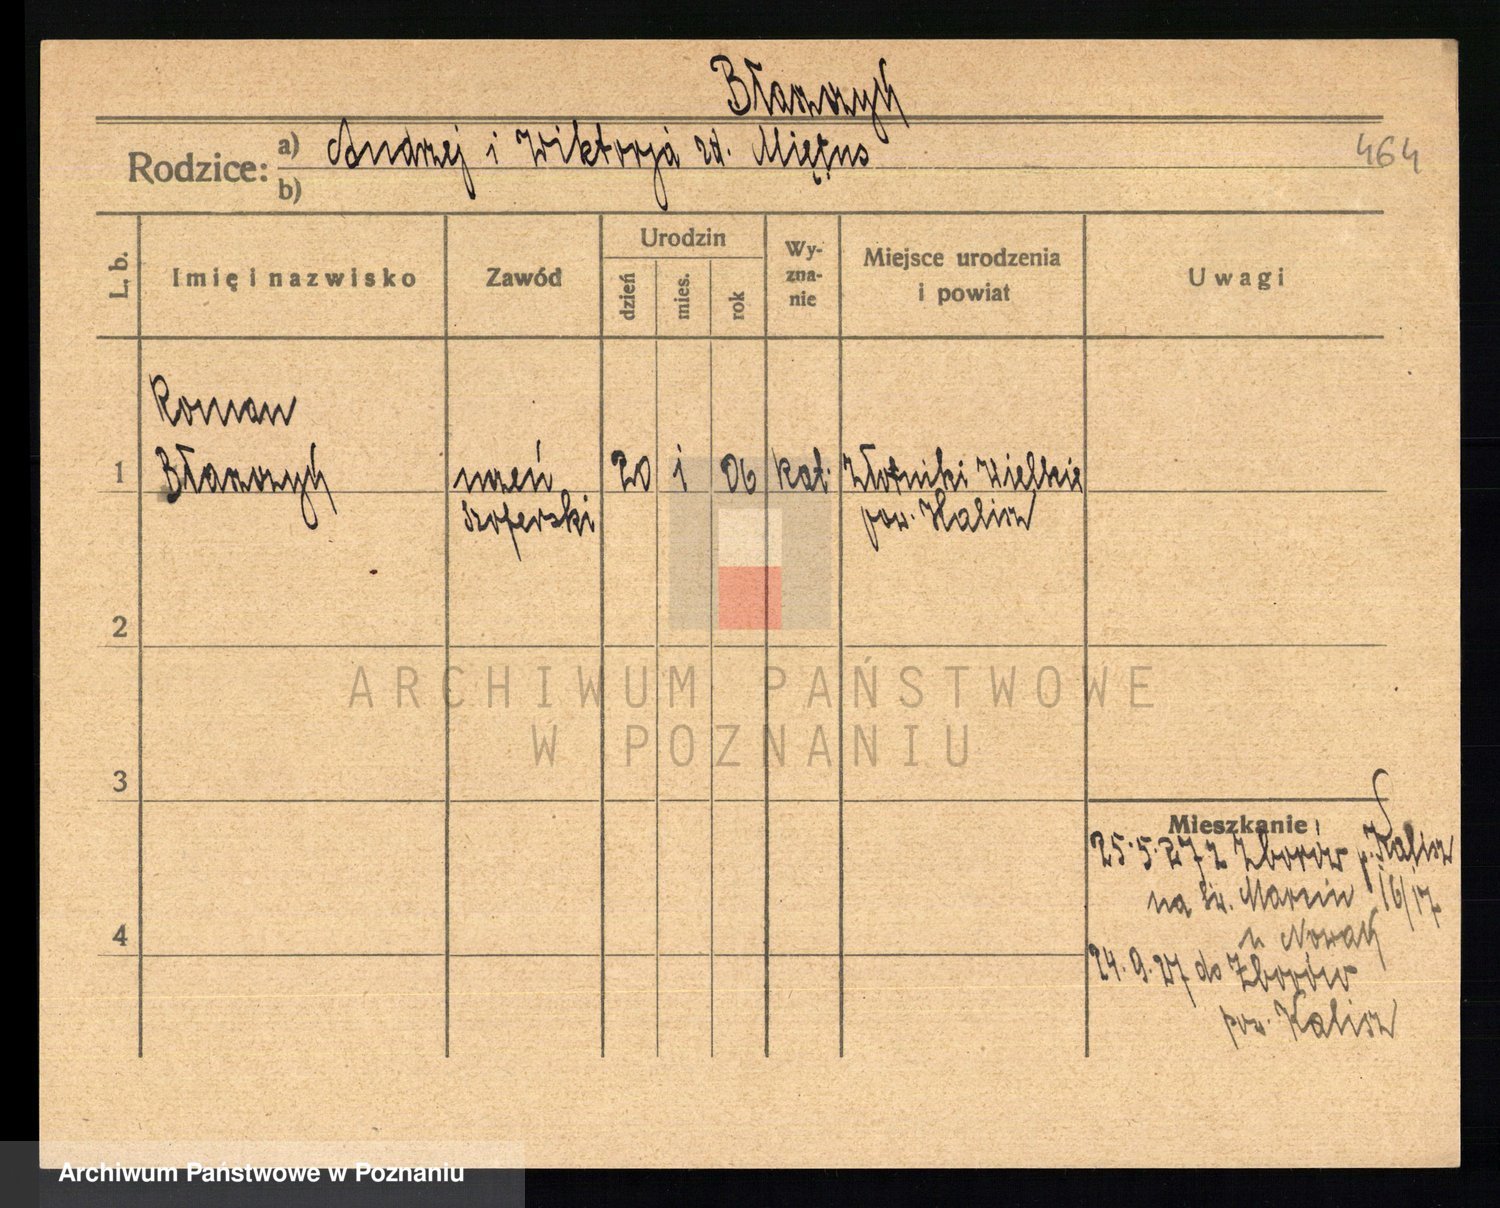 Błaszczyk
Rodzice: a) Andrzej i Wiktorja zd. Miętus
b)
464
L. b.
Imię i nazwisko
Zawód
Urodzin
dzień
mies.
rok
Wy-
zna-
nie
Miejsce urodzenia
i powiat
Uwagi
Roman
1 Błaszczyk uczeń 20 1 06 kat. Złotniki Wielkie
szoferski pow. Kalisz
2
ARCHIWUM PAŃSTWOWE
W POZNANIU
3
Mieszkanie
25.5.27 z Zborów p. Kalisz
na św. Marcin 16/17
u Nowak
4
24.9.27 do Zborów
pow. Kalisz
Archiwum Państwowe w Poznaniu